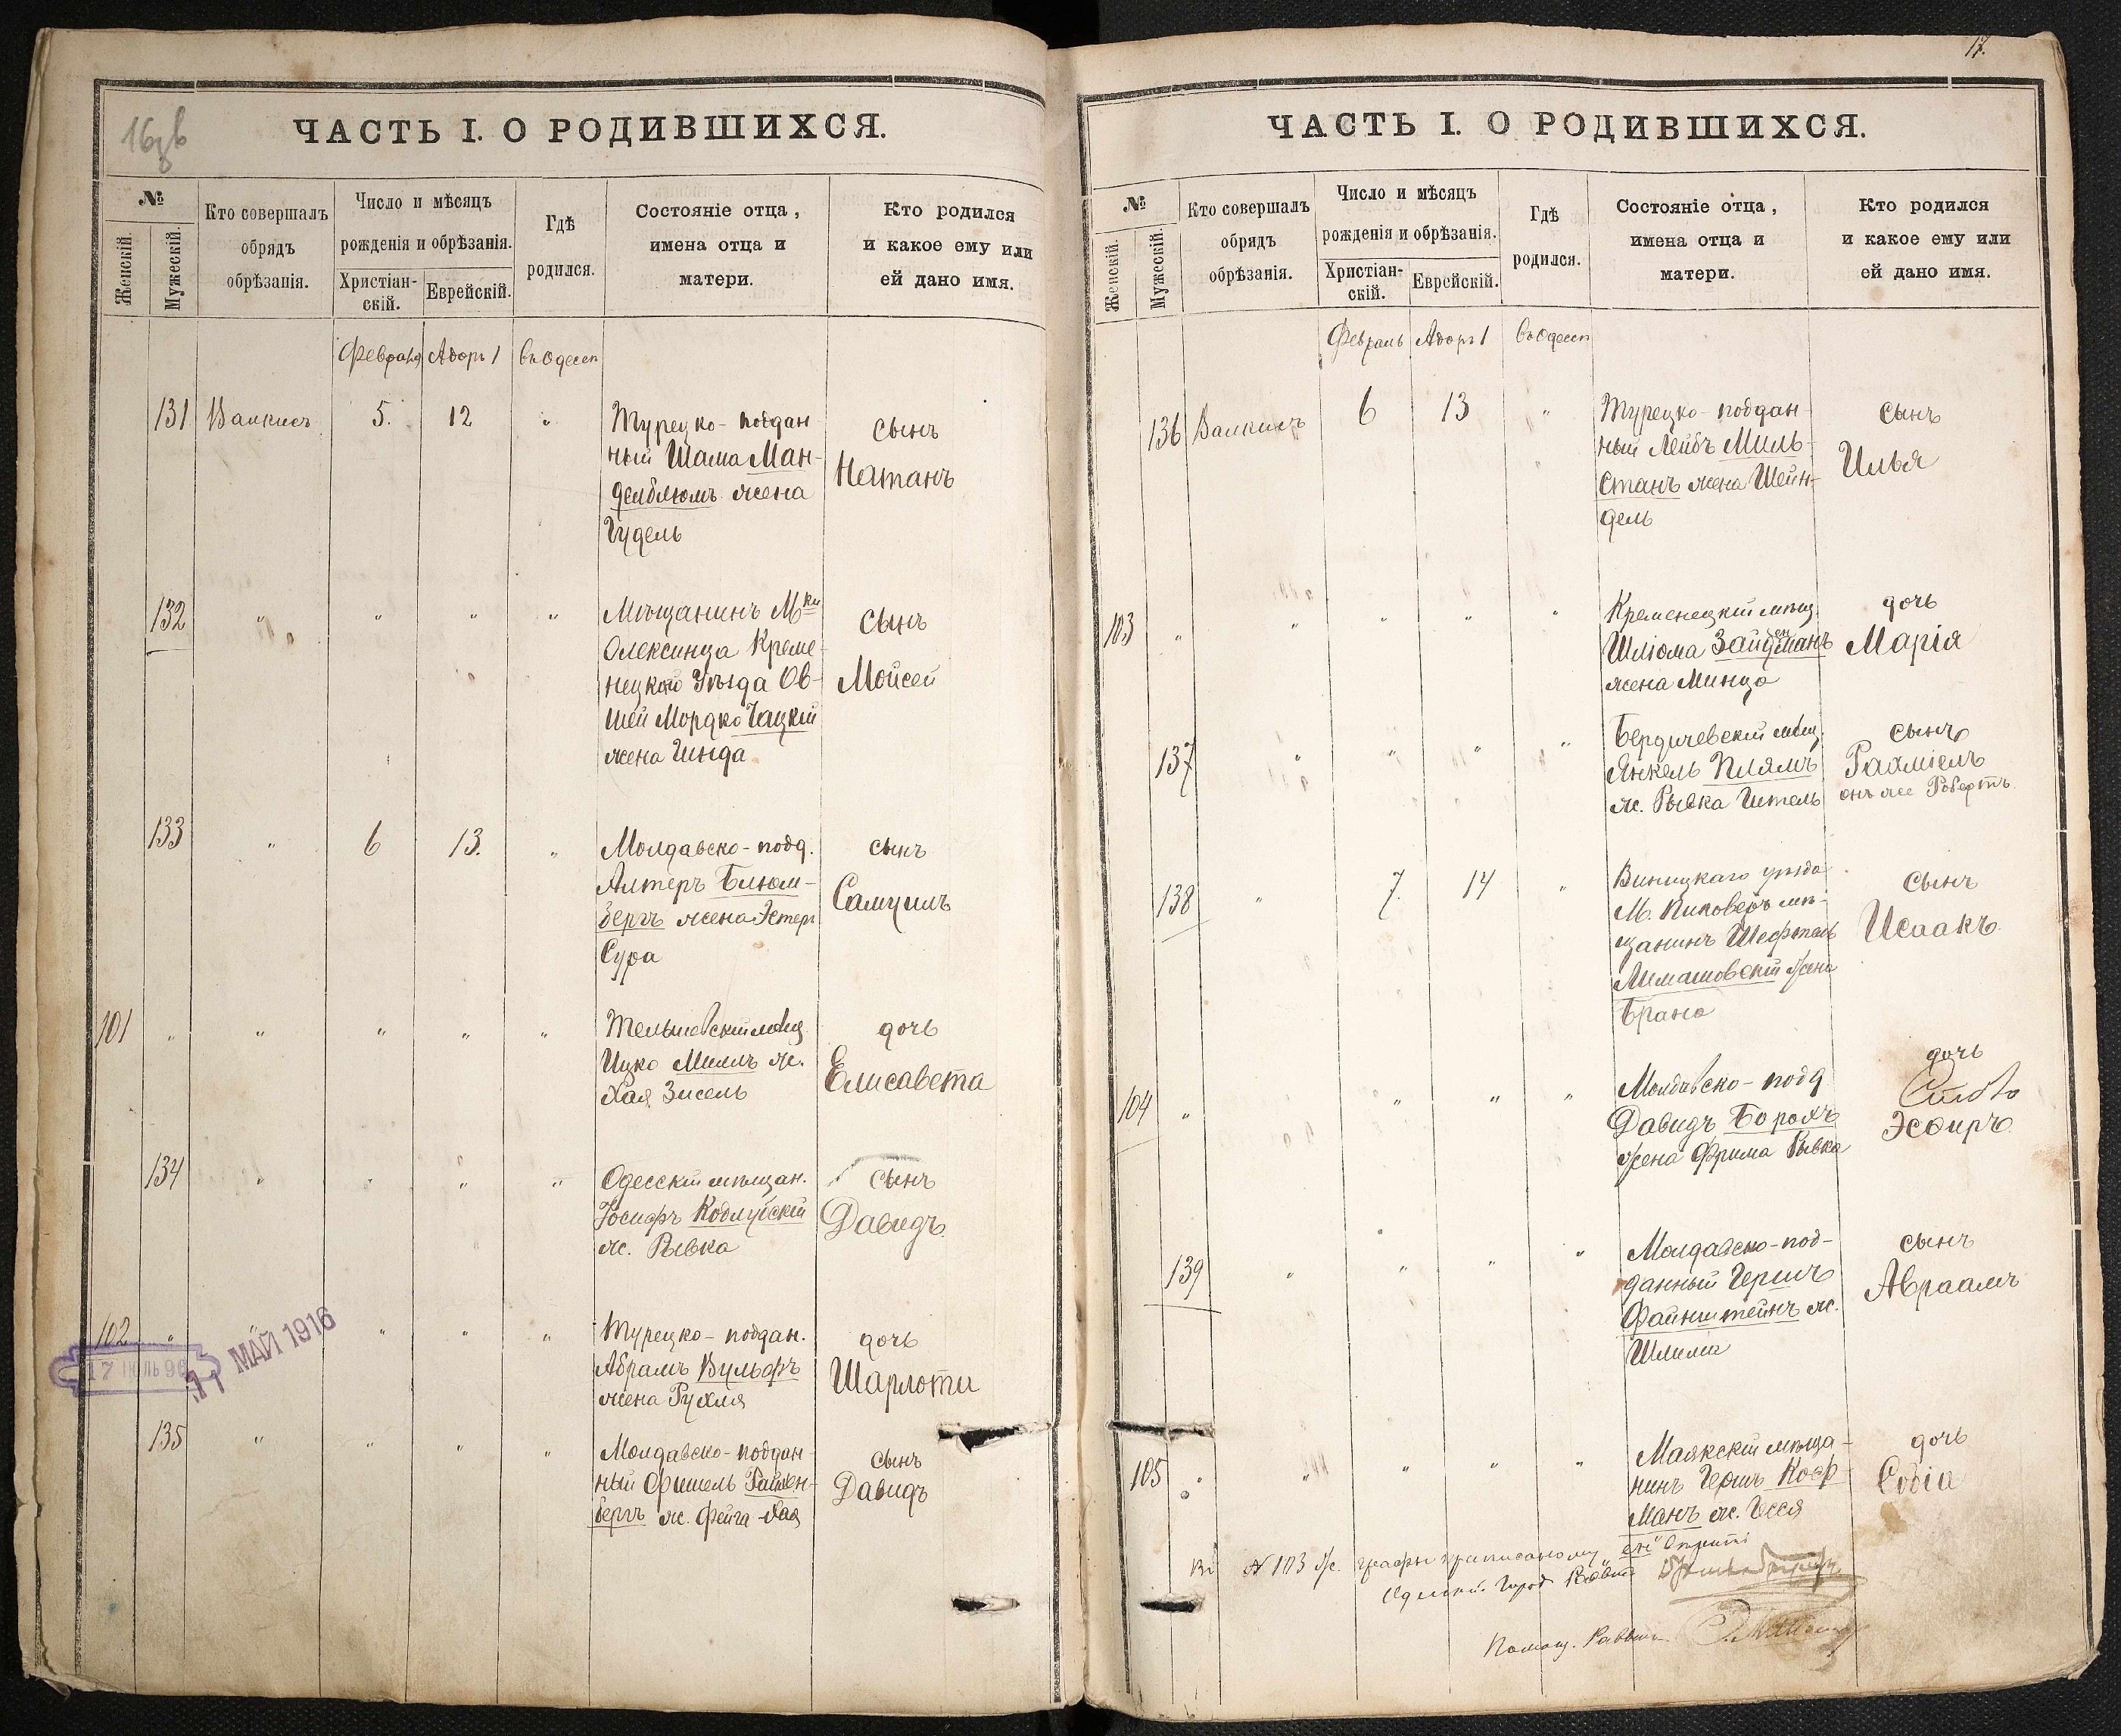 16зв
ЧАСТЬ I. О РОДИВШИХСЯ.
№
Женскій.
Мужескій.
Кто совершалъ
обрядъ
обрѣзанія.
Число и мѣсяцъ
рожденія и обрѣзанія.
Христіан-
скій.
Еврейскій.
Гдѣ
родился.
Состояніе отца,
имена отца и
матери.
Кто родился
и какое ему или
ей дано имя.
Февраля Адоръ 1 въ Одессѣ
131 5. 12 " Турецко-поддан
ный Шама Ман-
дельблюмъ жена
Гудель
сынъ
Натанъ
132 " " " " Мѣщанинъ Мки
Олексинца Креме-
нецкаго Уѣзда Ов-
шей Мордко Чацкій
жена Гинда
сынъ
Мойсей
133 " 6 13. " Молдавско-подд.
Алтеръ Блюм-
бергъ жена Эстеръ
Сура
сынъ
Самуилъ
101 " " " " " Тельшевскій мѣщ
Ицко Миллъ ж.
Хая Зисель
дочь
Елисавета
134 " " " " Одесскій мѣщан.
Іосифъ
ж. Рывка
сынъ
Давидъ
102 " " " " " Турецко-поддан.
Абрамъ Вульфъ
жена Рухля
дочь
Шарлоти
17 ІЮЛЬ 96
11 МАЙ 1916
135 " " " " Молдавско-поддан-
ный Фишель
бергъ ж. Фейга-Хая
сынъ
Давидъ
17.
ЧАСТЬ I. О РОДИВШИХСЯ.
№
Женскій.
Мужескій.
Кто совершалъ
обрядъ
обрѣзанія.
Число и мѣсяцъ
рожденія и обрѣзанія.
Христіан-
скій.
Еврейскій.
Гдѣ
родился.
Состояніе отца,
имена отца и
матери.
Кто родился
и какое ему или
ей дано имя.
Февраль Адоръ 1 въ Одессѣ
136 6 13 " Турецко-поддан-
ный Лейбъ Миль-
станъ жена Шейн-
дель
сынъ
Илья
103 " " " " " Кременецкій мѣщ.
Шлiома Зайденманъ
жена Минца
дочь
Марія
137 " " " " Бердичевскій мѣщ.
Янкель Плямъ
ж. Рывка Гитель
сынъ
Рахміель
онъ же Робертъ
138 " 7 14 " Виницкаго уѣзда
М. мѣ-
щанинъ Шефтель
жена
Брана
сынъ
Исаакъ
104 " " " " Молдавско-подд
Давидъ Борохъ
жена Фрима Рывка
дочь
Эсѳирь
139 " " " " Молдавско-под-
данный Гершъ
Файнштейнъ ж.
Шлима
сынъ
Авраамъ
105 " " " " " Маякскій мѣща-
нинъ Гершъ Коф-
манъ ж. Гесся
дочь
Софія
№ 103 ж. графы приписанному "ен"
Одесскій Город. Раввинъ
Помощ. Раввина